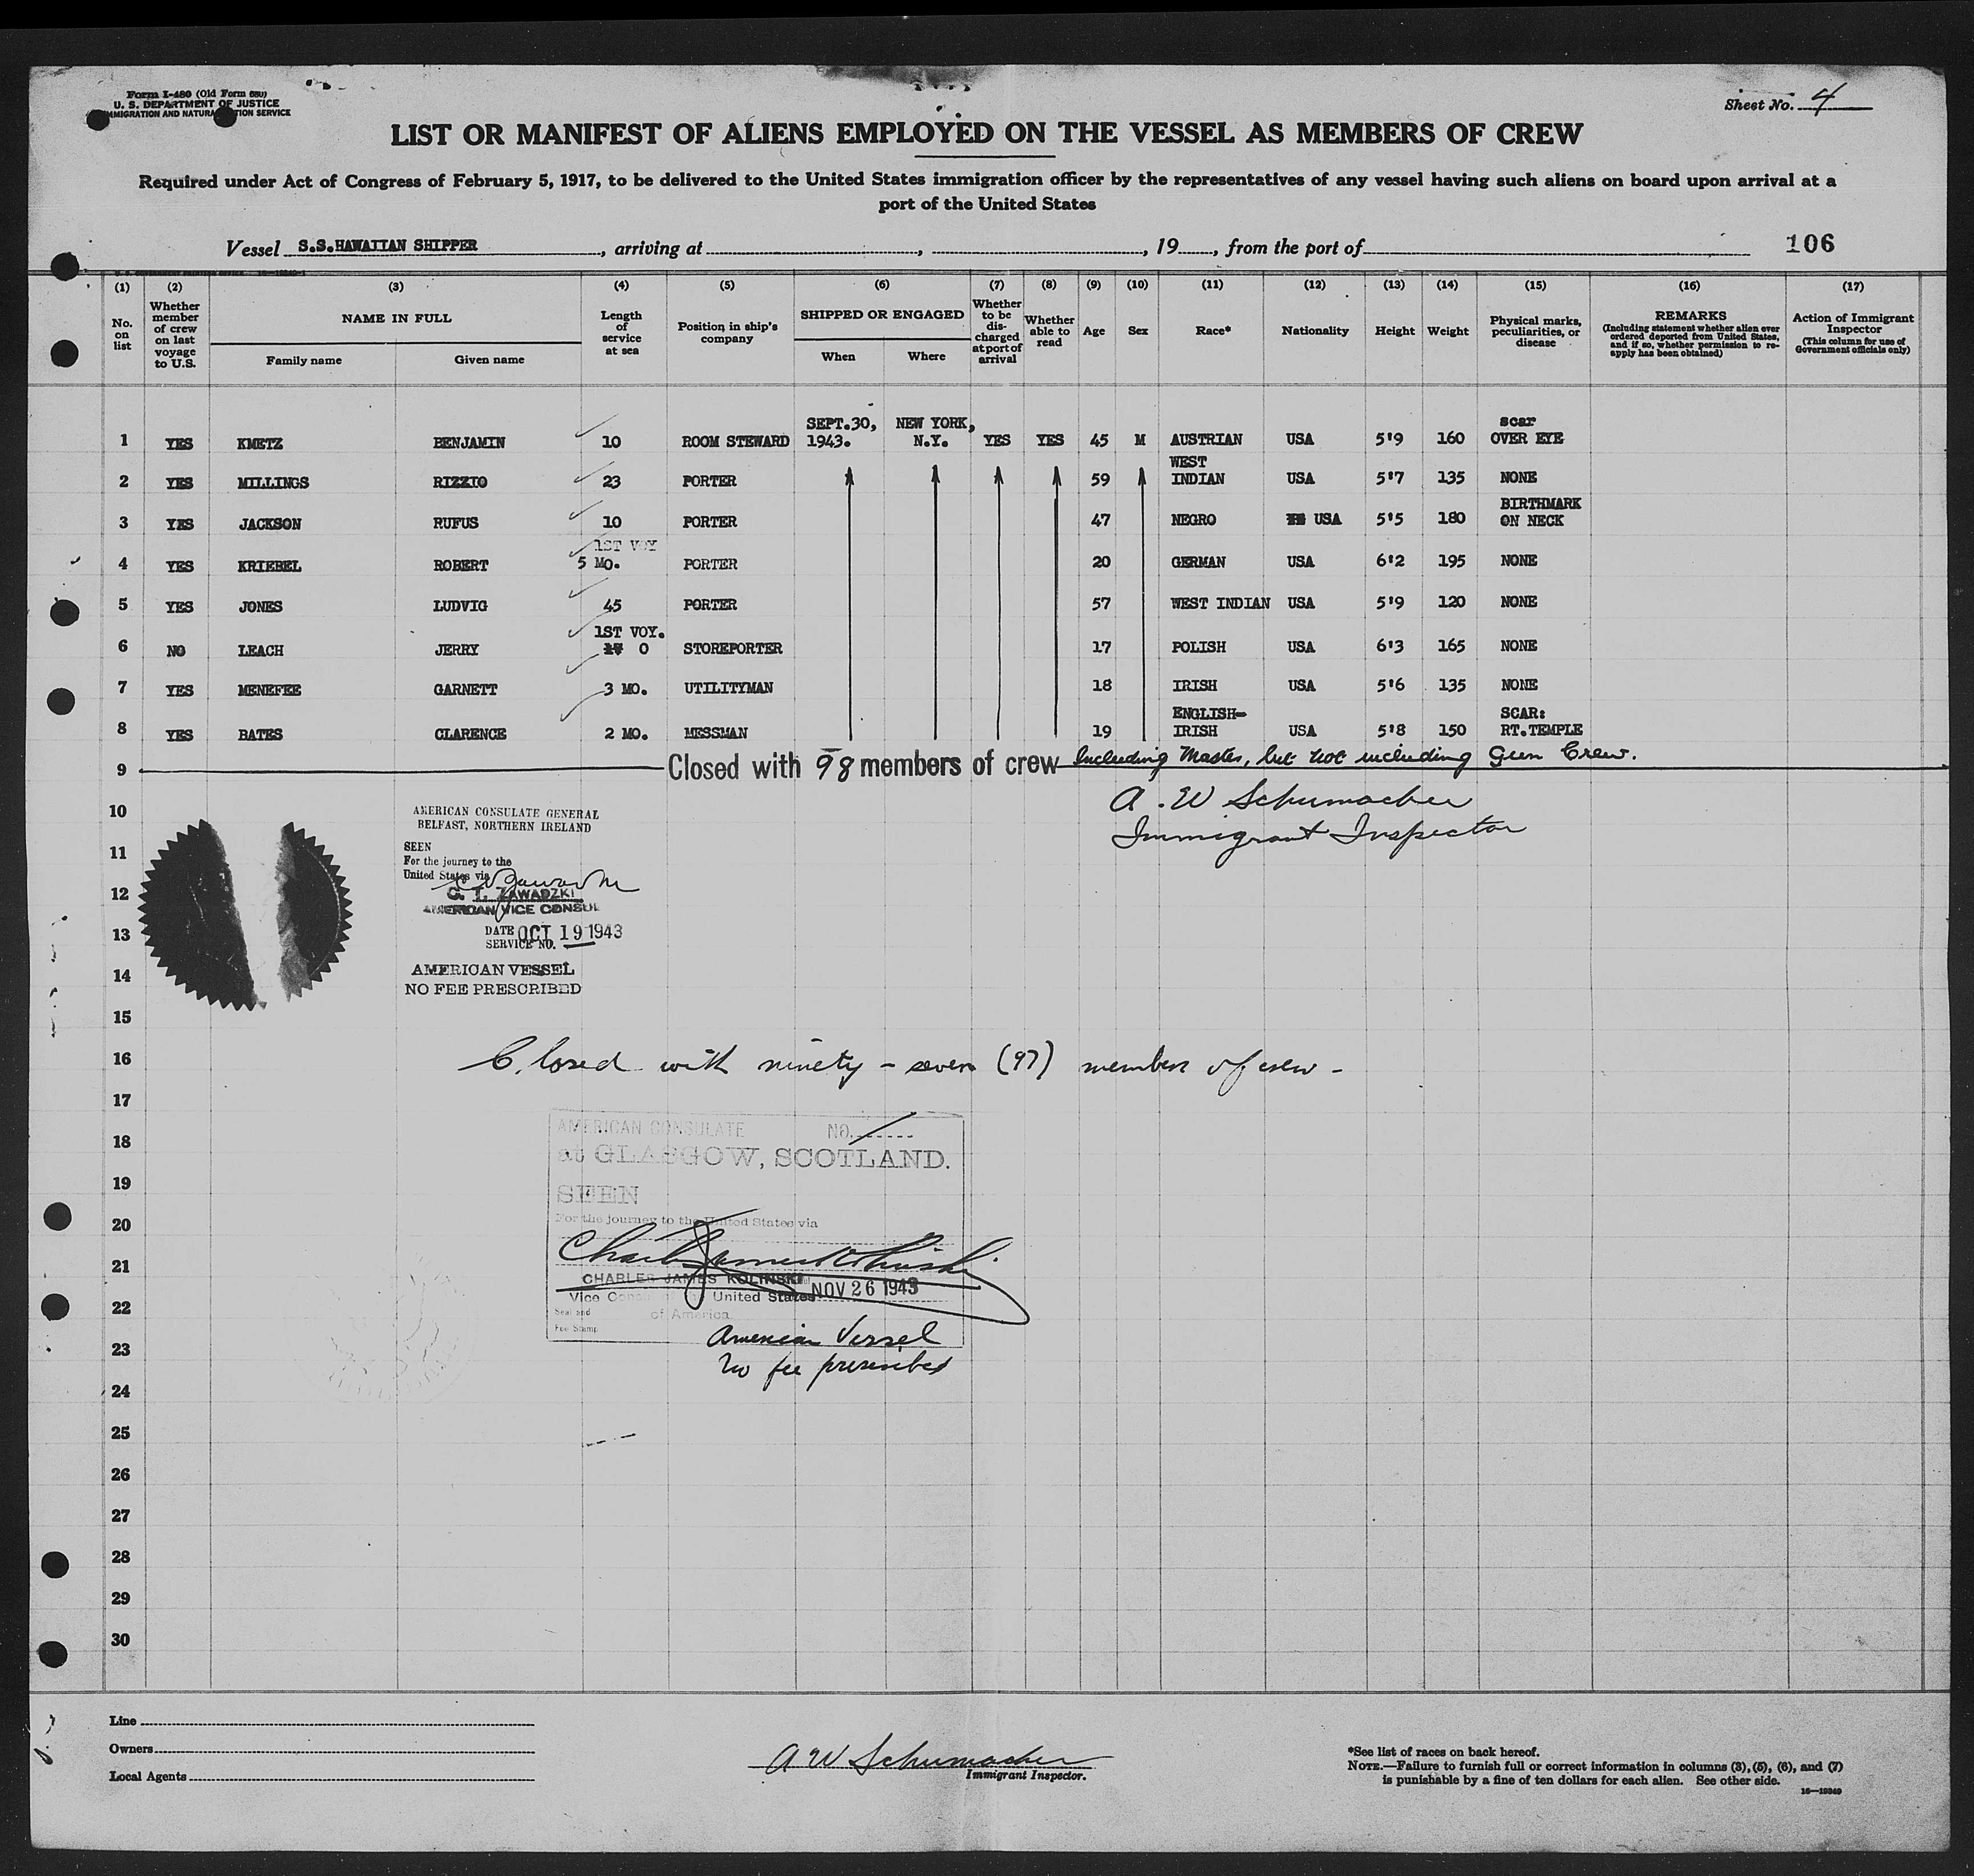 Form I-480 (Old Form 680)
U. S. DEPARTMENT OF JUSTICE
IMMIGRATION AND NATURALIZATION SERVICE
Sheet No. 4
LIST OR MANIFEST OF ALIENS EMPLOYED ON THE VESSEL AS MEMBERS OF CREW
Required under Act of Congress of February 5, 1917, to be delivered to the United States immigration officer by the representatives of any vessel having such aliens on board upon arrival at a
port of the United States
Vessel S.S.HAWAIIAN SHIPPER, arriving at , , 19 , from the port of 106
(1) (2) (3) (4) (5) (6) (7) (8) (9) (10) (11) (12) (13) (14) (15) (16) (17)
No. on list
Whether member of crew on last voyage to U.S.
NAME IN FULL
Family name Given name
Length of service at sea
Position in ship's company
SHIPPED OR ENGAGED
When Where
Whether to be discharged at port of arrival
Whether able to read
Age
Sex
Race*
Nationality
Height
Weight
Physical marks, peculiarities, or disease
REMARKS
(Including statement whether alien ever ordered deported from United States, and if so, whether permission to re-apply has been obtained)
Action of Immigrant Inspector
(This column for use of Government officials only)
1 YES KMETZ BENJAMIN 10 ROOM STEWARD SEPT.30, 1943. NEW YORK, N.Y. YES YES 45 M AUSTRIAN USA 5'9 160 scar OVER EYE
2 YES MILLINGS RIZZIO 23 PORTER 59 WEST INDIAN USA 5'7 135 NONE
3 YES JACKSON RUFUS 10 PORTER 47 NEGRO USA 5'5 180 BIRTHMARK ON NECK
4 YES KRIEBEL ROBERT 1ST VOY 5 MO. PORTER 20 GERMAN USA 6'2 195 NONE
5 YES JONES LUDVIG 45 PORTER 57 WEST INDIAN USA 5'9 120 NONE
6 NO LEACH JERRY 1ST VOY. 0 STOREPORTER 17 POLISH USA 6'3 165 NONE
7 YES MENEFEE GARNETT 3 MO. UTILITYMAN 18 IRISH USA 5'6 135 NONE
8 YES BATES CLARENCE 2 MO. MESSMAN 19 ENGLISH-IRISH USA 5'8 150 SCAR: RT.TEMPLE
9 Closed with 98 members of crew Including Master, but not including Gun Crew.
A. W Schumacher
Immigrant Inspector
10
11
12
13
14
15
AMERICAN CONSULATE GENERAL
BELFAST, NORTHERN IRELAND
SEEN
For the journey to the
United States via
C. T. ZAWADZKI
AMERICAN VICE CONSUL
DATE OCT 19 1943
SERVICE NO.
AMERICAN VESSEL
NO FEE PRESCRIBED
16 Closed with ninety-seven (97) members of crew -
17
18
19
20
21
22
23
24
AMERICAN CONSULATE No.
at GLASGOW, SCOTLAND.
SEEN
For the journey to the United States via
Charles James Kolinski
CHARLES JAMES KOLINSKI NOV 26 1943
Vice Consul of the United States
of America
Seal and
Fee Stamp
American Vessel
No fee prescribed
25
26
27
28
29
30
Line
Owners
Local Agents
A W Schumacher
Immigrant Inspector.
*See list of races on back hereof.
NOTE.—Failure to furnish full or correct information in columns (3), (5), (6), and (7)
is punishable by a fine of ten dollars for each alien. See other side.
16—19349